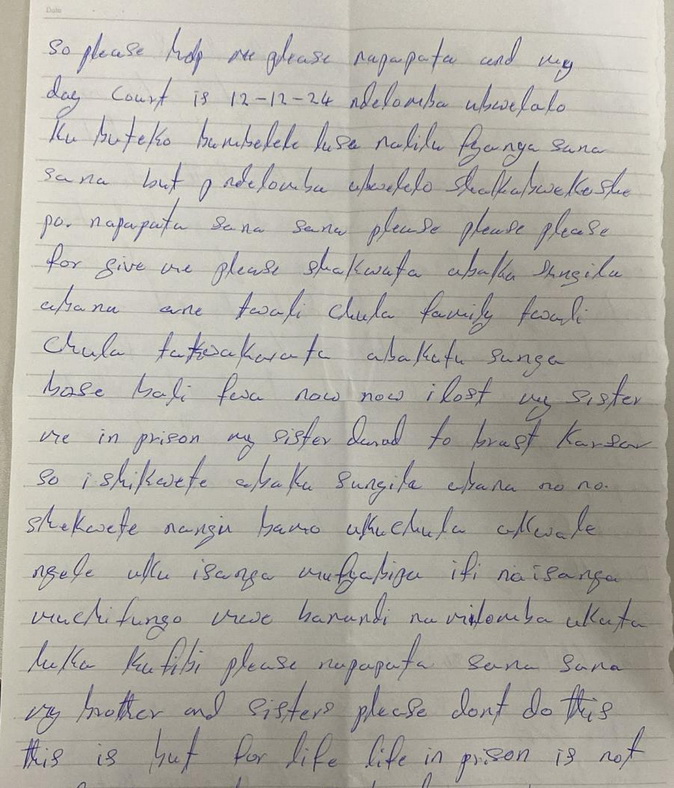 so please help me please napapata and my
day court is 12-12-24 ndelomba ubwelelo
ku buteko bumbelele lusa nalilu fyanga sana
sana but p ndelomba ubwelelo shakabwekeshe
po. napapata sana sana please please please
for give me please shakwata abaku sungila
abana ane twali chula family twali
chula takwakwata abakutu sunga
base bali fwa now now i lost my sister
me in prison my sister danad to brast Kansar
so i shikwete abaku sungila abana no no.
shekwete nangu bamo ukuchula akwale
ngefe uku isanga mufyabipa ifi naisanga
muchifungo mwe banandi na milomba ukuta
luka kufibi please napapata sana sana
my brother and sisters please dont do this
this is but for life life in prison is not